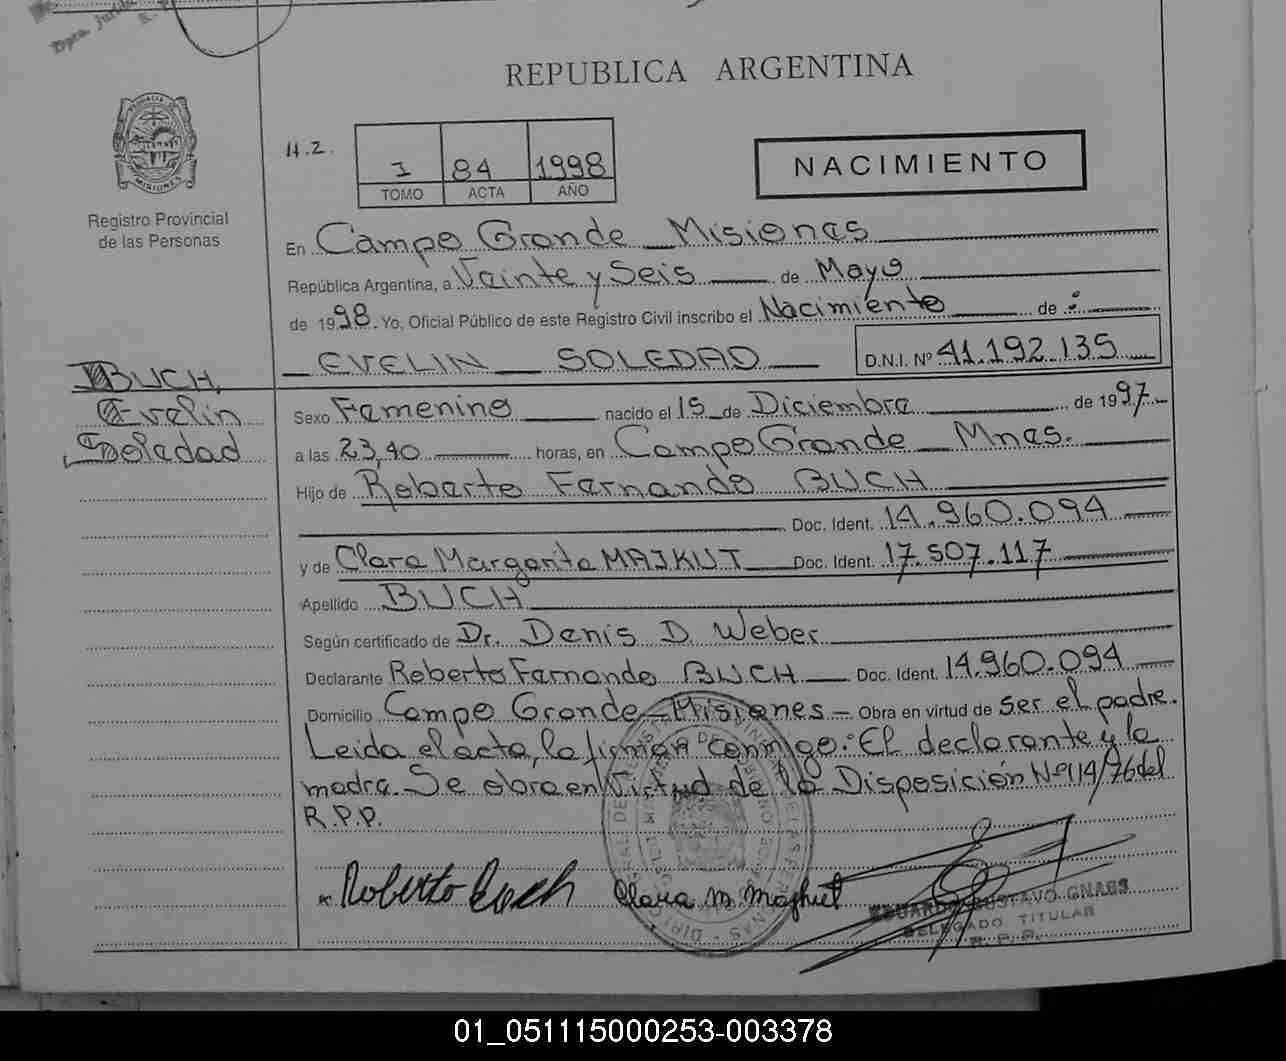 REPUBLICA ARGENTINA
PROVINCIA DE
MISIONES
Registro Provincial
de las Personas
H.Z.
I 84 1998
TOMO ACTA AÑO
NACIMIENTO
En Campo Grande Misiones
República Argentina, a Veinte y Seis de Mayo
de 1998. Yo, Oficial Público de este Registro Civil inscribo el Nacimiento de :
EVELIN SOLEDAD D.N.I. Nº 41.192.135
BUCH,
Evelin
Soledad
Sexo Femenino nacido el 15 de Diciembre de 1997
a las 23,40 horas, en Campo Grande Mnes.
Hijo de Roberto Fernando BUCH
Doc. Ident. 14.960.094
y de Clara Margarita MAJKUT Doc. Ident. 17.507.117
Apellido BUCH
Según certificado de Dr. Denis D. Weber
Declarante Roberto Fernando BUCH Doc. Ident. 14.960.094
Domicilio Campo Grande - Misiones - Obra en virtud de ser el padre.
Leida el acta, la firman conmigo: El declarante y la
madre. Se obra en Virtud de la Disposición Nº 114/76 del
R.P.P.
Roberto Buch Clara M. Majkut
EDUARDO GUSTAVO GNASS
DELEGADO TITULAR
R. P. P.
01_051115000253-003378